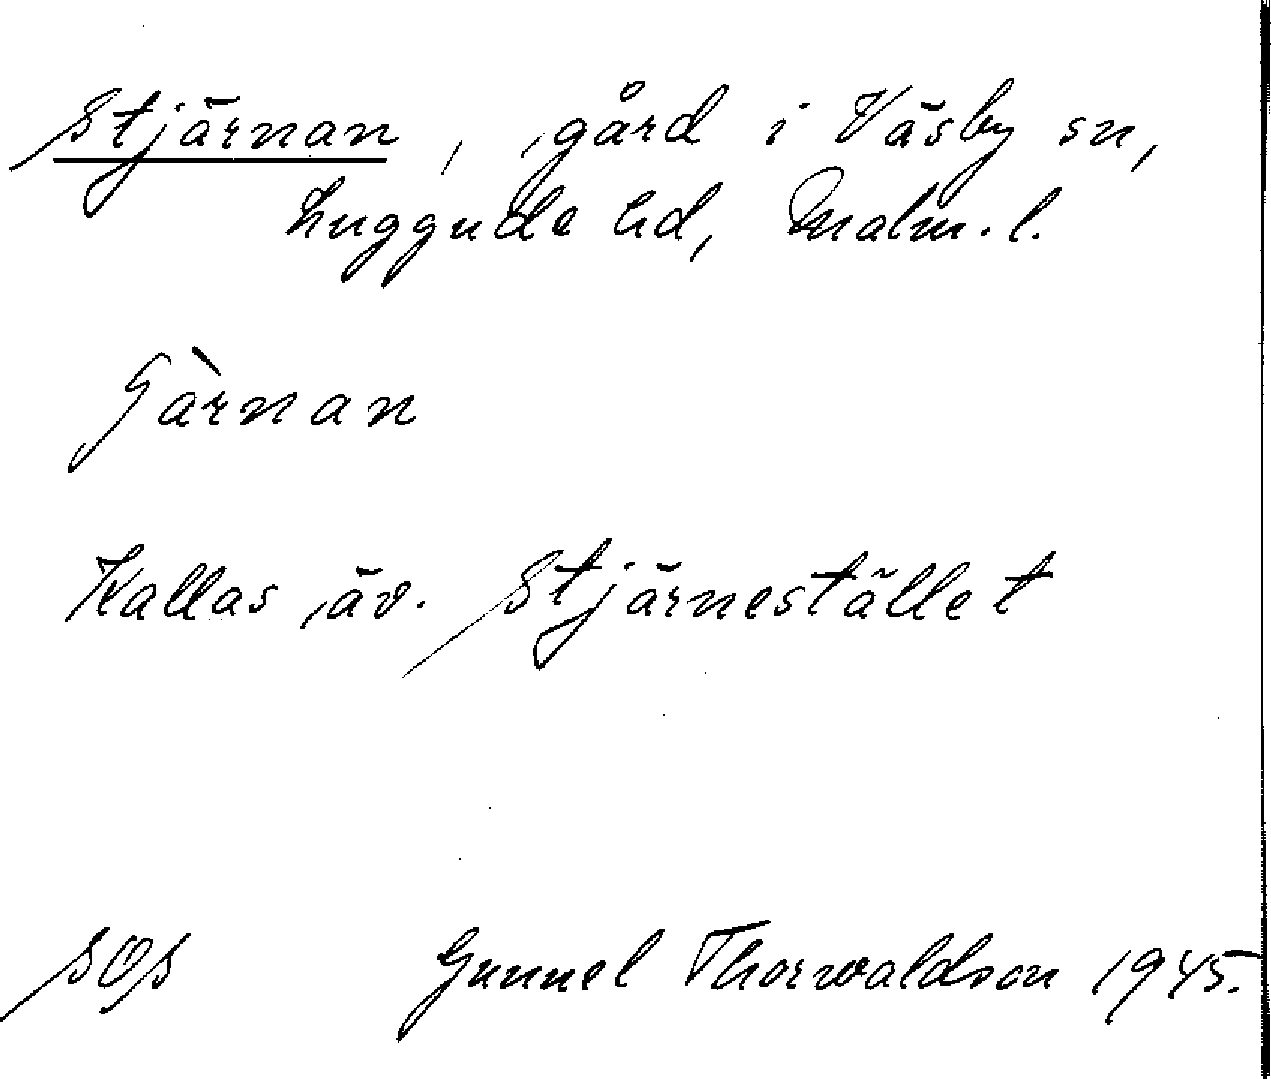 Stjärnan, gård i Väsby sn,
Luggude hd, Malm. l.
Kallas äv. Stjärnestället
SOS Gunnel Thorwaldson 1945.